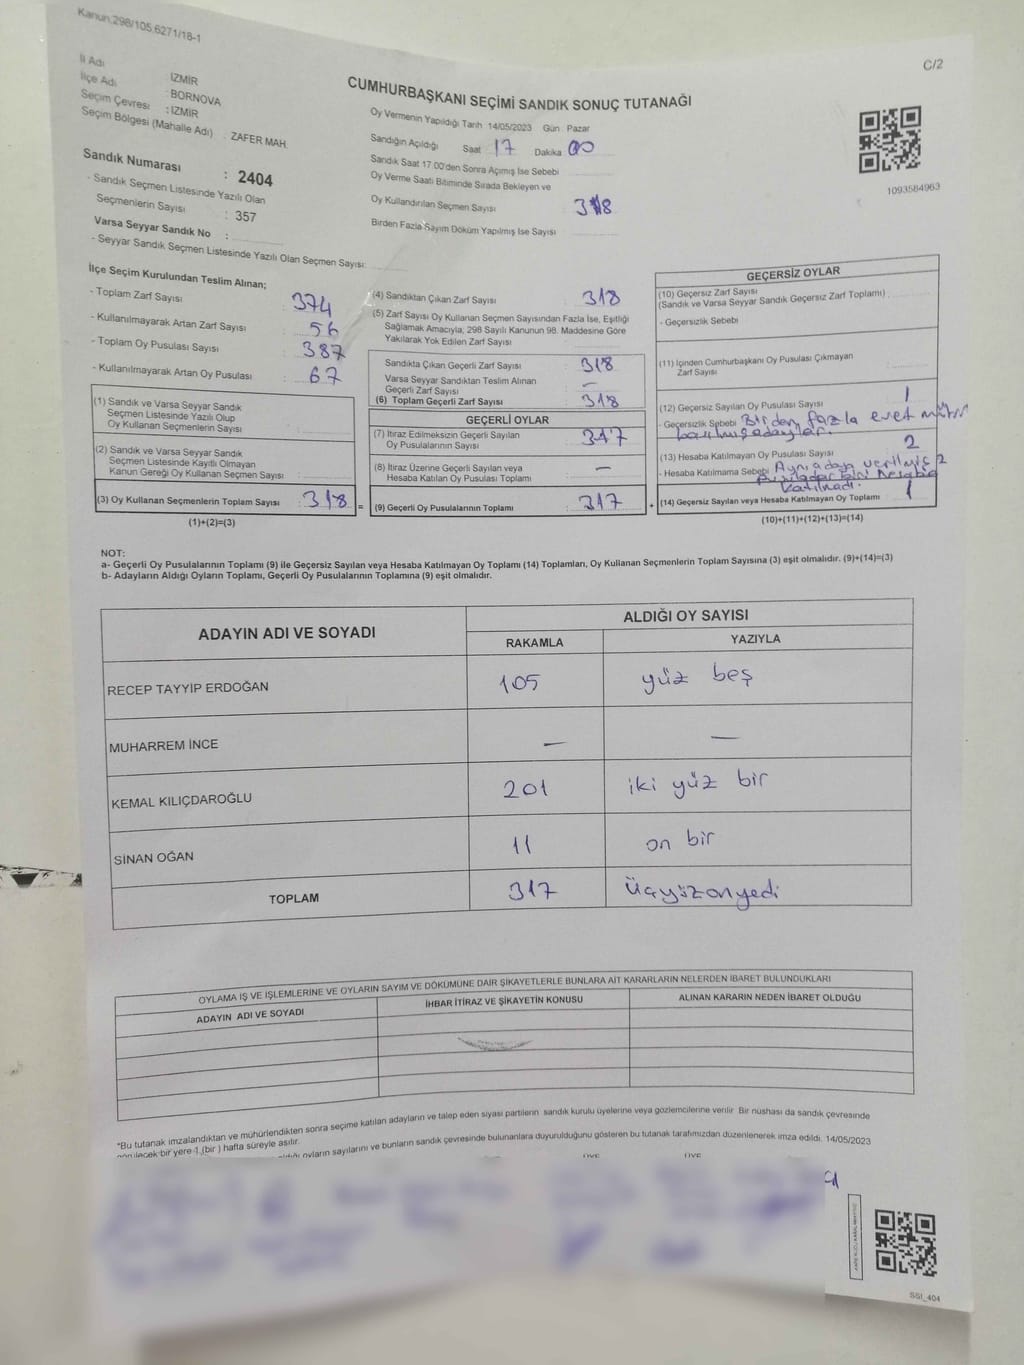 Kanun.298/105.6271/18-1
C/2
İl Adı : İZMİR
İlçe Adı : BORNOVA
Seçim Çevresi : İZMİR
Seçim Bölgesi (Mahalle Adı) : ZAFER MAH.
Sandık Numarası : 2404
- Sandık Seçmen Listesinde Yazılı Olan
Seçmenlerin Sayısı : 357
Varsa Seyyar Sandık No :
- Seyyar Sandık Seçmen Listesinde Yazılı Olan Seçmen Sayısı:
CUMHURBAŞKANI SEÇİMİ SANDIK SONUÇ TUTANAĞI
Oy Vermenin Yapıldığı Tarih 14/05/2023 Gün Pazar
Sandığın Açıldığı Saat 17 Dakika 00
Sandık Saat 17.00'den Sonra Açımış İse Sebebi
Oy Verme Saati Bitiminde Sırada Bekleyen ve
Oy Kullandırılan Seçmen Sayısı 318
Birden Fazla Sayım Döküm Yapılmış İse Sayısı
1093584963
İlçe Seçim Kurulundan Teslim Alınan;
- Toplam Zarf Sayısı : 374
- Kullanılmayarak Artan Zarf Sayısı : 56
- Toplam Oy Pusulası Sayısı : 387
- Kullanılmayarak Artan Oy Pusulası : 67
(1) Sandık ve Varsa Seyyar Sandık
Seçmen Listesinde Yazılı Olup
Oy Kullanan Seçmenlerin Sayısı :
(2) Sandık ve Varsa Seyyar Sandık
Seçmen Listesinde Kayıtlı Olmayan
Kanun Gereği Oy Kullanan Seçmen Sayısı :
(3) Oy Kullanan Seçmenlerin Toplam Sayısı : 318 =
(1)+(2)=(3)
(4) Sandıktan Çıkan Zarf Sayısı : 318
(5) Zarf Sayısı Oy Kullanan Seçmen Sayısından Fazla İse, Eşitliği
Sağlamak Amacıyla, 298 Sayılı Kanunun 98. Maddesine Göre
Yakılarak Yok Edilen Zarf Sayısı
Sandıkta Çıkan Geçerli Zarf Sayısı : 318
Varsa Seyyar Sandıktan Teslim Alınan
Geçerli Zarf Sayısı : –
(6) Toplam Geçerli Zarf Sayısı : 318
GEÇERLİ OYLAR
(7) İtiraz Edilmeksizin Geçerli Sayılan
Oy Pusulalarının Sayısı : 317
(8) İtiraz Üzerine Geçerli Sayılan veya
Hesaba Katılan Oy Pusulası Toplamı : –
(9) Geçerli Oy Pusulalarının Toplamı : 317 +
GEÇERSİZ OYLAR
(10) Geçersiz Zarf Sayısı
(Sandık ve Varsa Seyyar Sandık Geçersiz Zarf Toplamı) :
- Geçersizlik Sebebi
(11) İçinden Cumhurbaşkanı Oy Pusulası Çıkmayan
Zarf Sayısı :
(12) Geçersiz Sayılan Oy Pusulası Sayısı : 1
- Geçersizlik Sebebi Birden fazla evet mührü
basılmış adaylar.
(13) Hesaba Katılmayan Oy Pusulası Sayısı : 2
- Hesaba Katılmama Sebebi Aynı adaya verilmiş 2
pusuladan biri hesaba
katılmadı.
(14) Geçersiz Sayılan veya Hesaba Katılmayan Oy Toplamı : 1
(10)+(11)+(12)+(13)=(14)
NOT:
a- Geçerli Oy Pusulalarının Toplamı (9) ile Geçersiz Sayılan veya Hesaba Katılmayan Oy Toplamı (14) Toplamları, Oy Kullanan Seçmenlerin Toplam Sayısına (3) eşit olmalıdır. (9)+(14)=(3)
b- Adayların Aldığı Oyların Toplamı, Geçerli Oy Pusulalarının Toplamına (9) eşit olmalıdır.
ADAYIN ADI VE SOYADI
ALDIĞI OY SAYISI
RAKAMLA YAZIYLA
RECEP TAYYİP ERDOĞAN 105 yüz beş
MUHARREM İNCE – –
KEMAL KILIÇDAROĞLU 201 iki yüz bir
SİNAN OĞAN 11 on bir
TOPLAM 317 Üçyüzonyedi
OYLAMA İŞ VE İŞLEMLERİNE VE OYLARIN SAYIM VE DÖKÜMÜNE DAİR ŞİKAYETLERLE BUNLARA AİT KARARLARIN NELERDEN İBARET BULUNDUKLARI
ADAYIN ADI VE SOYADI İHBAR İTİRAZ VE ŞİKAYETİN KONUSU ALINAN KARARIN NEDEN İBARET OLDUĞU
*Bu tutanak imzalandıktan ve mühürlendikten sonra seçime katılan adayların ve talep eden siyasi partilerin sandık kurulu üyelerine veya gözlemcilerine verilir. Bir nüshası da sandık çevresinde
görülecek bir yere 1 (bir) hafta süreyle asılır.
oyların sayılarını ve bunların sandık çevresinde bulunanlara duyurulduğunu gösteren bu tutanak tarafımızdan düzenlenerek imza edildi. 14/05/2023
ÜYE ÜYE
SSI_404